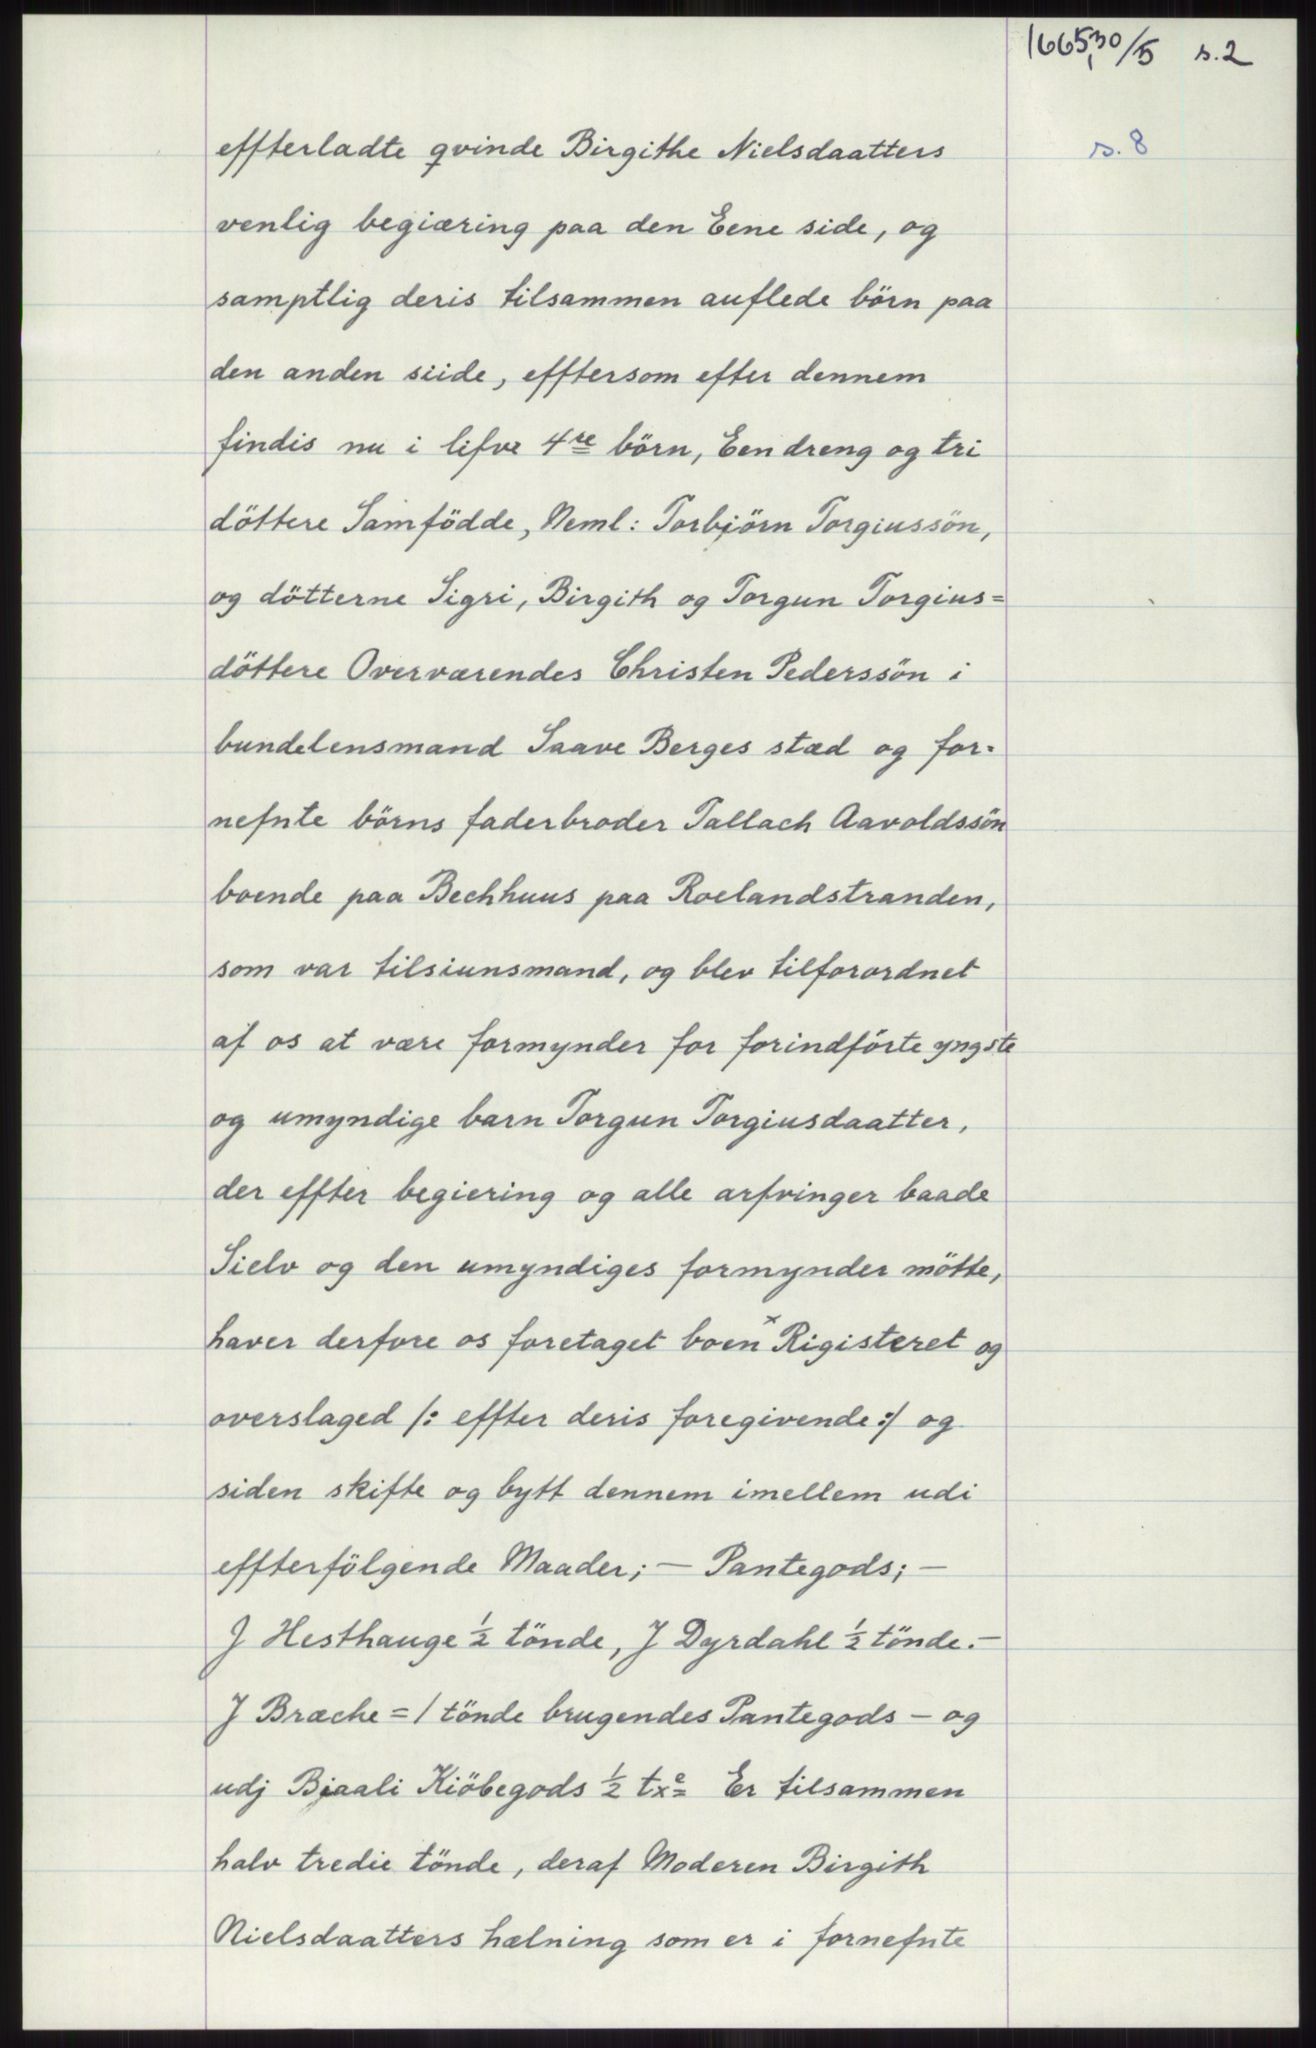 1665, 30/5 s.2
s. 8
effterladte qvinde Birgithe Nielsdaatters
venlig begiæring paa den Eene side, og
samptlig deris tilsammen auflede börn paa
den anden siide, efftersom efter dennem
findis nu i lifve 4re börn, Een dreng og tri
döttere Samfödde, Neml: Torbjörn Torgiussön,
og dötterne Sigri, Birgith og Torgun Torgius=
döttere Overværendes Christen Pederssön i
bundelensmand Saave Berges stæd og for-
nefnte börns faderbroder Tallach Aavoldssön
boende paa Bechhuus paa Roelandstranden,
som var tilsiunsmand, og blev tilforordnet
af os at være formynder for forindförte yngste
og umyndige barn Torgun Torgiusdaatter,
der effter begiering og alle arfvinger baade
Sielv og den umyndiges formynder mötte,
haver derfore os foretaget boen x Rigisteret og
overslaged /: effter deris foregivende :/ og
siden skifte og bytt dennem imellem udi
effterfölgende Maader; — Pantegods; —
J Hesthauge ½ tönde, J Dyrdahl ½ tönde. —
J Bræche = 1 tönde brugendes Pantegods — og
udj Bjaali Kiöbegods ½ txe= Er tilsammen
halv tredie tönde, deraf Moderen Birgith
Nielsdaatters hælning som er i fornefnte